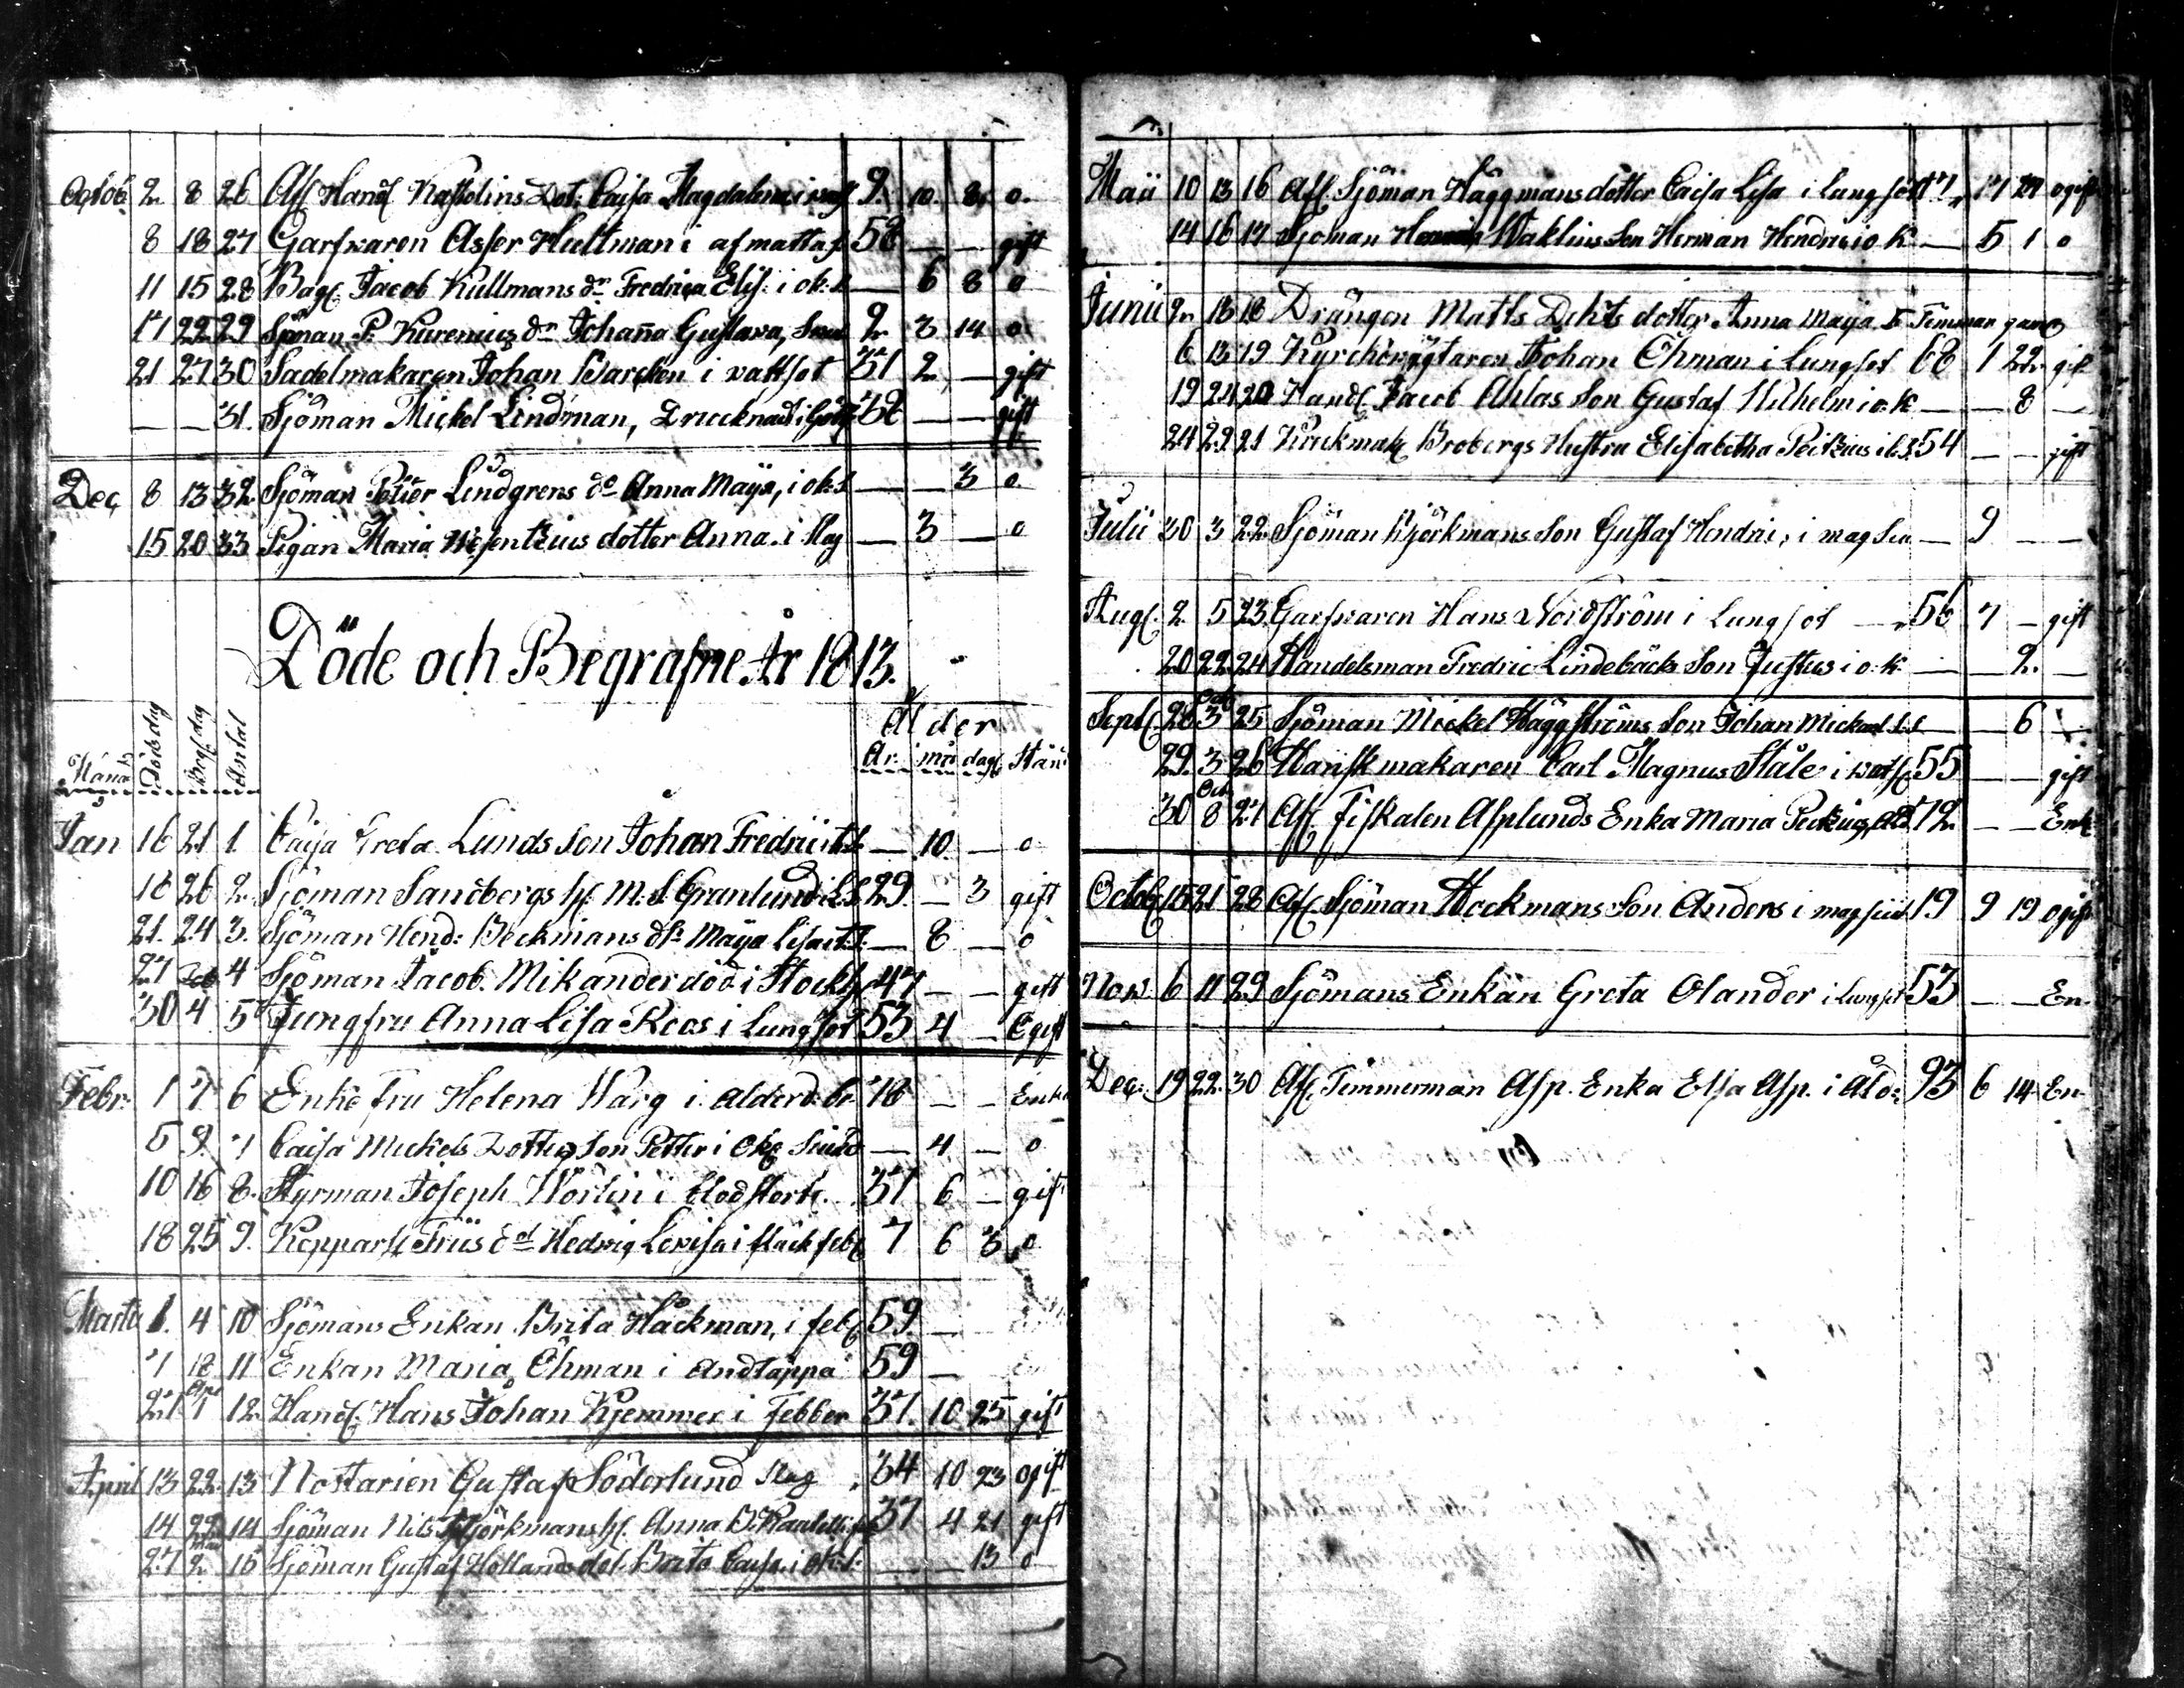 Octob. 2 8 26 Afl Handl Kastelins Dot: Caisa Magdalena i 2. 10. 8. o.
8 18 27 Garfvaren Asser Hultman i afmattal 58 — — gift
11 15 28 Bag: Jacob Kullmans dr Fredrica Elis: i ok: s — 6 8 o
17 22 29 Sjöman P. Kurenius dr Johanna Gustava, 2 3 14 o
21 27 30 Sadelmakaren Johan Barcken i vattsot 37 2 — gift
— — 31. Sjöman Mickel Lindman, Drucknad i 38 — — gift
Dec 8 13 32 Sjöman Petter Lindgrens do Anna Maija, i ok: s — — 3 o
15 20 33 Pigan Maria Wesentzius dotter Anna i Slag — 3 — o
Döde och Begrafne År 1813.
Ålder
Månad Dödsdag Begr dag Antal År mån dag Stånd
Jan 16 21 1. Caija Greta Lunds Son Johan Fredric — 10 — o
18 26 2. Sjöman Sandbergs h. M. S. Granlund i L.S 29 — 3 gift
21. 24 3. Sjöman Hend: Beckmans dr Maija Lisa — 8 — o
27 Feb 4 Sjöman Jacob Mikander död i Stockh 47 — — gift
30 4 5 Jungfru Anna Lisa Roos i Lungsot 53 4 — Ogift
Febr: 1 7 6 Enke fru Helena Warg i Alderd: 78 — — Enka
5 9 7 Caisa Mickels Dotters Son Petter i Ok — 4 — o
10 16 8. Styrman Joseph Wörlin i blodstört. 37 6 — gift
18 25 9. Kopparsl Friis dot Hedvig Lovisa i fläckfeb 7 6 3 o
Martii 1. 4 10 Sjömans Enkan Brita Håckman, i feb 59 —
7 18 11 Enkan Maria Öhman i Andtäppa 59 —
27 Apr 1 12. Handl. Hans Johan Kjemmer i Febber 37. 10 25 gift
April 13 22 13 Nottarien Gustaf Söderlund Slag 34 10 23 Ogift
14 22 14 Sjöman Nils Björkmans h. Anna 37 4 21 gift
27 2 15 Sjöman Gustaf Hollands dot. Brita Caisa i ok: s: — — 13 o
Maii 10 13 16 Afl. Sjöman Häggmans dotter Caisa Lisa i lungsot 17 17 27 ogift
14 16 17 Sjöman Waklins Son Herman Hendric i o. k — 5 1 o
Junii 2 13 18 Drängen Matts Dehts dotter Anna Maija 5 Timmar gam
6 13 19 Kyrckovägtaren Johan Öhman i Lungsot 68 1 22 gift
19 24 20 Handl Jacob Ahlas Son Gustaf Wilhelm i o. k — — 8 —
24 29 21 Kruckmak Brobergs Hustru Elisabetha Peitzius i l.s 54 — — gift
Julii 30 3 22. Sjöman Björkmans Son Gustaf Hendric i mag — 9 — —
Aug. 2 5 23 Garfvaren Hans Nordström i Lungsot — 56 7 — gift
20 22 24 Handelsman Fredric Lindebäcks Son Justus i o. k — — 2. —
Sept. 28 Oct 3 25 Sjöman Mickel Häggströms Son Johan Mickael — — 6 —
29. 3 26 Handskmakaren Carl Magnus Ståle i vats 55 — — gift
30 Oct 8 27 Afl. Fiskalen Asplunds Enka Maria Peitzius, 72 — — Enk
Octob 15 21 28 Afl. Sjöman Höckmans Son Anders i magsiuk 19 9 19 ogift
Nov. 6 11 29 Sjömans Enkan Greta Olander i Lungsot 53 — — En
Dec: 19 22. 30 Afl. Timmerman Asp. Enka Elsa Asp. i Åld: 93 6 14 En